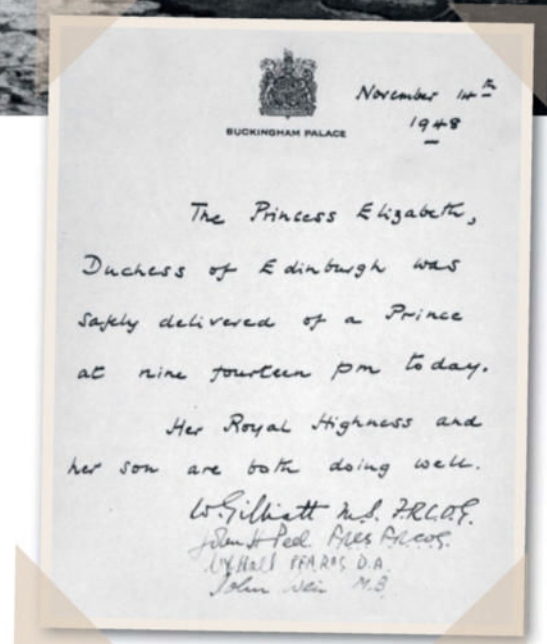 November 14th
1948
BUCKINGHAM PALACE
The Princess Elizabeth,
Duchess of Edinburgh was
safely delivered of a Prince
at nine fourteen pm today.
Her Royal Highness and
her son are both doing well.
W Gilliatt M.S. F.R.C.O.G.
John H Peel. FRCS FRCOG.
Hall D.A.
John Weir M.B.